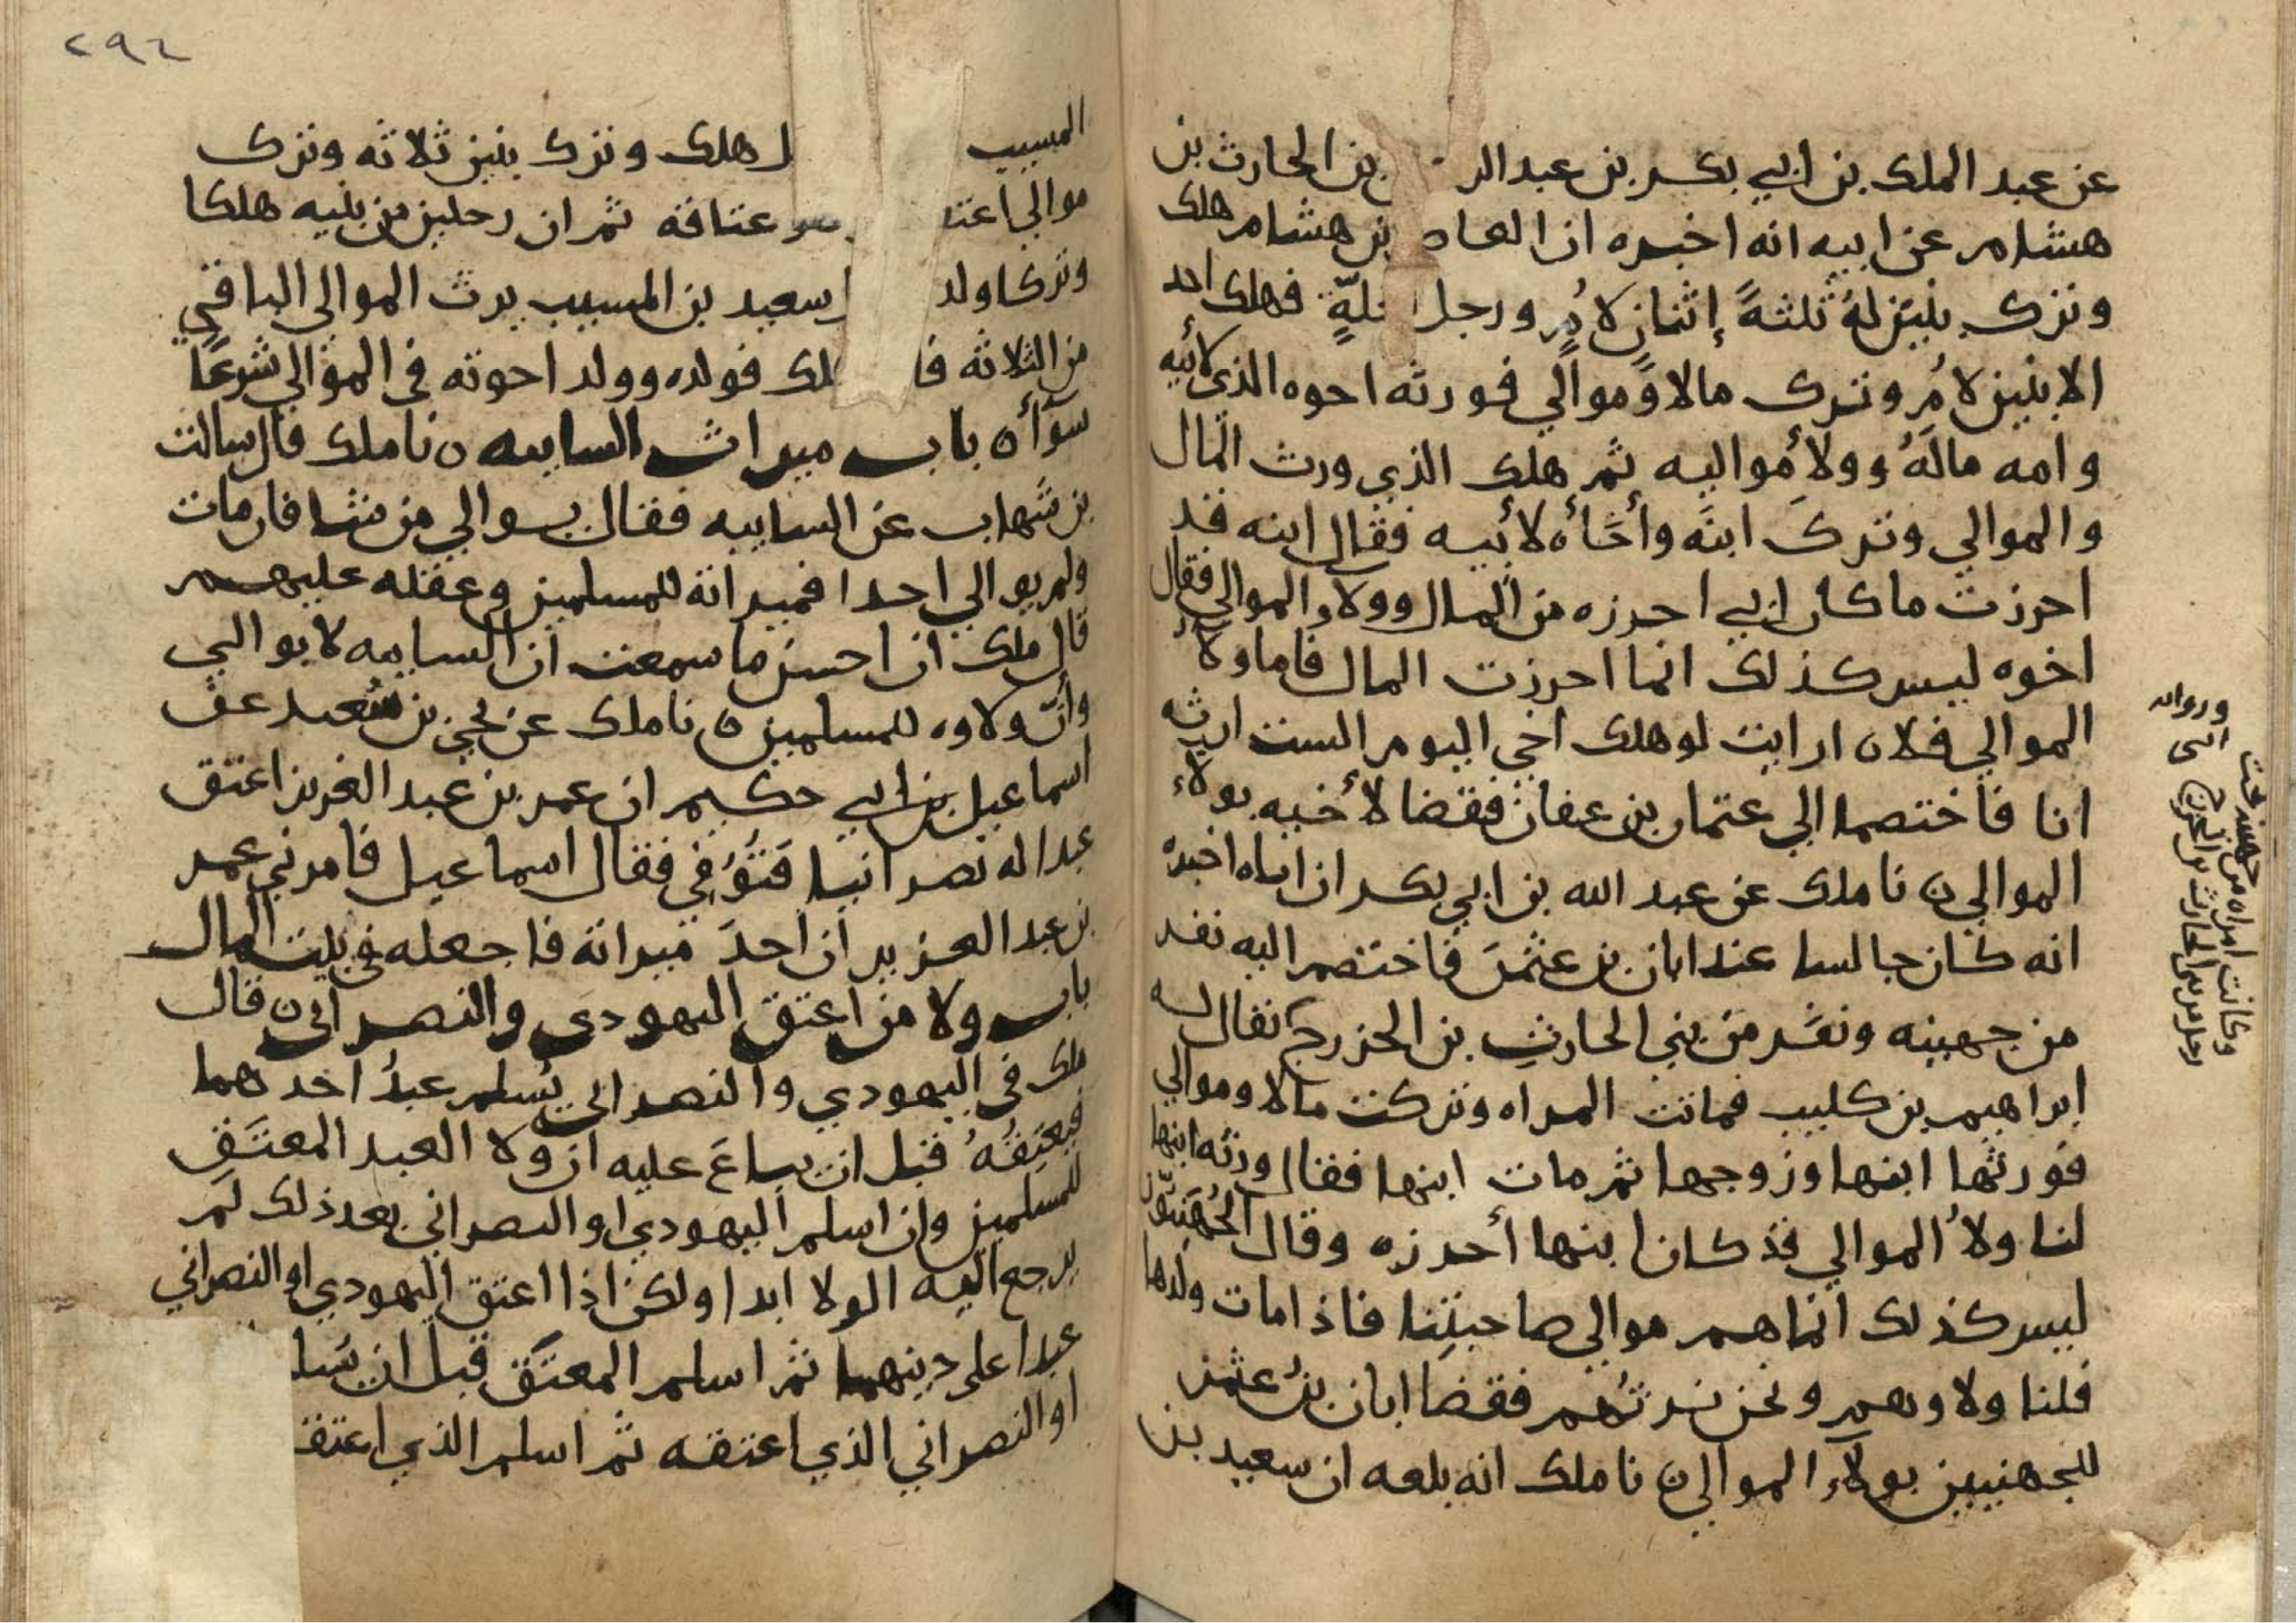 عن عبد الملك بن ابي بكر بن عبد الر بن الحارث بن
هشام عن ابيه انه اخبره ان العاص بن هشام هلك
وترك بنين له ثلثةً إثنان لامٍ ورجل لعلةٍ فهلك احد
الابنين لامٍ وترك مالا وموالي فورثه اخوه الذي لأبيه
وامه ماله وولا مواليه ثم هلك الذي ورث المال
والموالي وترك ابنه وأخاه لأبيه فقال ابنه قد
احرزت ما كان ابي احرزه من المال وولاء الموالي فقال
اخوه ليس كذلك انما احرزت المال فاما ولاء
الموالي فلا ارايت لو هلك اخي اليوم الست ارثه
انا فاختصما الي عثمان بن عفان فقضا لأخيه بولاء
الموالي ن نا ملك عن عبد الله بن ابي بكر ان اباه اخبره
انه كان جالسا عند ابان بن عثمن فاختصم اليه نفر
من جهينه ونفر من بني الحارث بن الخزرج
وكانت امراه من جهينه تحت
رجل من بني الحارث بن الخزرج
يقال له
ابراهيم بن كليب فماتت المراه وتركت مالا وموالي
فورثها ابنها وزوجها ثم مات ابنها فقال ورثه ابنها
لنا ولاُ الموالي قد كان ابنها أحرزه وقال الجُهَنِيّون
ليس كذلك انما هم موالي صاحبتنا فاذا مات ولدها
فلنا ولاوهم ونحن نرثهم فقضا ابان بن عثمن
للجهنيين بولاء الموالي ن نا ملك انه بلغه ان سعيد بن
٢٩٤
المسيب هلك وترك بنين ثلاثه وترك
موالي اعتقهم هو عتاقه ثم ان رجلين من بنيه هلكا
وتركا ولد سعيد بن المسيب يرث الموالي الباقي
من الثلاثه فا هلك فولده وولد اخوته في الموالي شرعًا
سوآء ن باب ميراث السايبه ن نا ملك قال سالت
بن شهاب عن السايبه فقال يوالي من شا فان مات
ولم يوالي احدا فميراثه للمسلمين وعقله عليهم
قال ملك ان احسن ما سمعت ان السايبه لا يوالي
وأنّ ولاوه للمسلمين ن نا ملك عن يحيى بن سعيد عن
اسماعيل بن ابي حكيم ان عمر بن عبد العزيز اعتق
عبدا له نصرانيا فَتُوُفي فقال اسماعيل فامرني عمر
بن عبد العزيز ان اخذ ميراثه فاجعله في بيت المال
باب ولا من اعتق اليهودي والنصراني ن قال
ملك في اليهودي والنصراني يُسلم عبدُ احدهما
فيعتِقُهُ قبل ان يباعَ عليه ان ولا العبد المعتَق
للمسلمين وان اسلم اليهودي او النصراني بعد ذلك لم
يرجع اليه الولا ابدا ولكن اذا اعتق اليهودي او النصراني
عبدا على دينهما ثم اسلم المعتَق قبل ان يسلم
او النصراني الذي اعتقه ثم اسلم الذي اعتقه